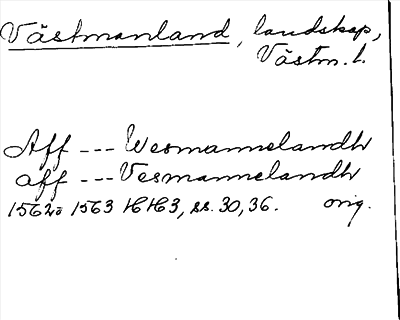 Västmanland, landskap,
Västm. l.
Aff --- Wesmannelandh
aff --- Vesmannelandh
1562 o 1563 HH3, ss. 30, 36. orig.